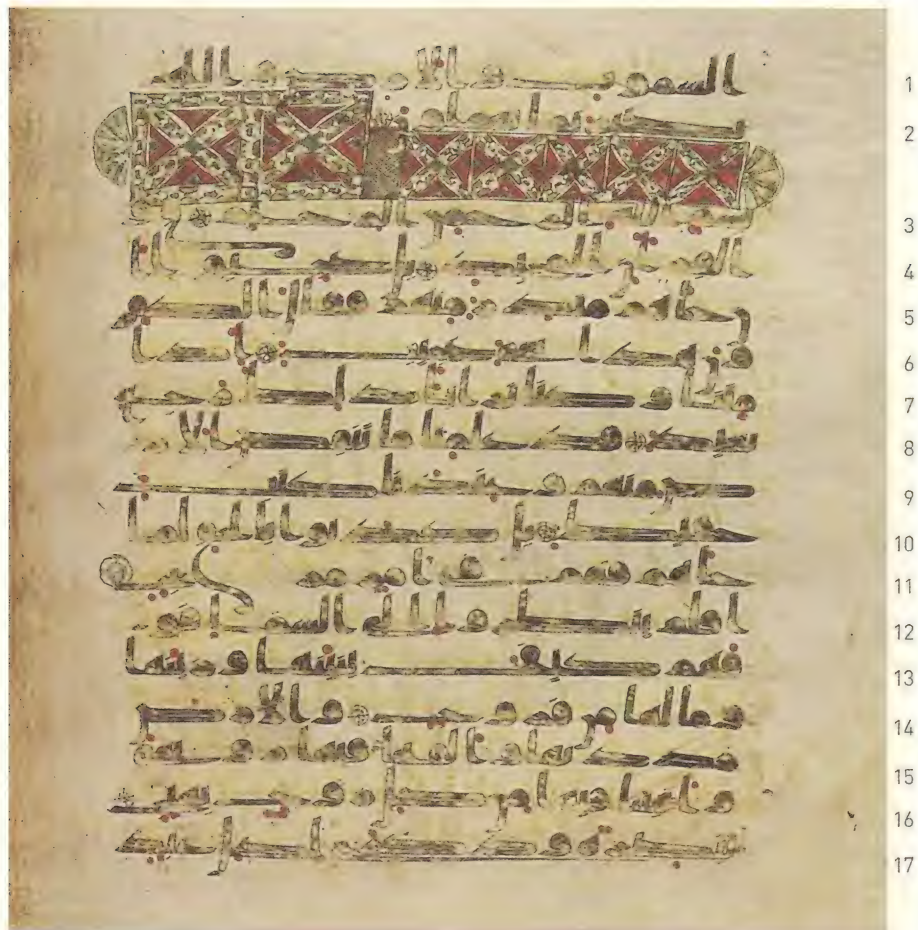 السموت والارض والله 1
بصير بما تعملون 2
بسم الله الرحمن الرحيم ق و 3
القران المجيد بل عجبوا ان 4
جاهم منذر منهم فقال الكفر 5
ون هذا شى عجيب اذا 6
متنا وكنا ترابا ذلك رجع 7
بعيد قد علمنا ما تنقص الار 8
ض منهم وعندنا كتب 9
حفيظ بل كذبوا بالحق لما 10
جاهم فهم فى امر مريج 11
افلم ينظروا الى السما فو 12
قهم كيف بنينها وزينها 13
وما لها من فروج والارض 14
مددنها والقينا فيها روسى 15
وانبتنا فيها من كل زوج بهيج 16
تبصرة وذكرى لكل عبد 17